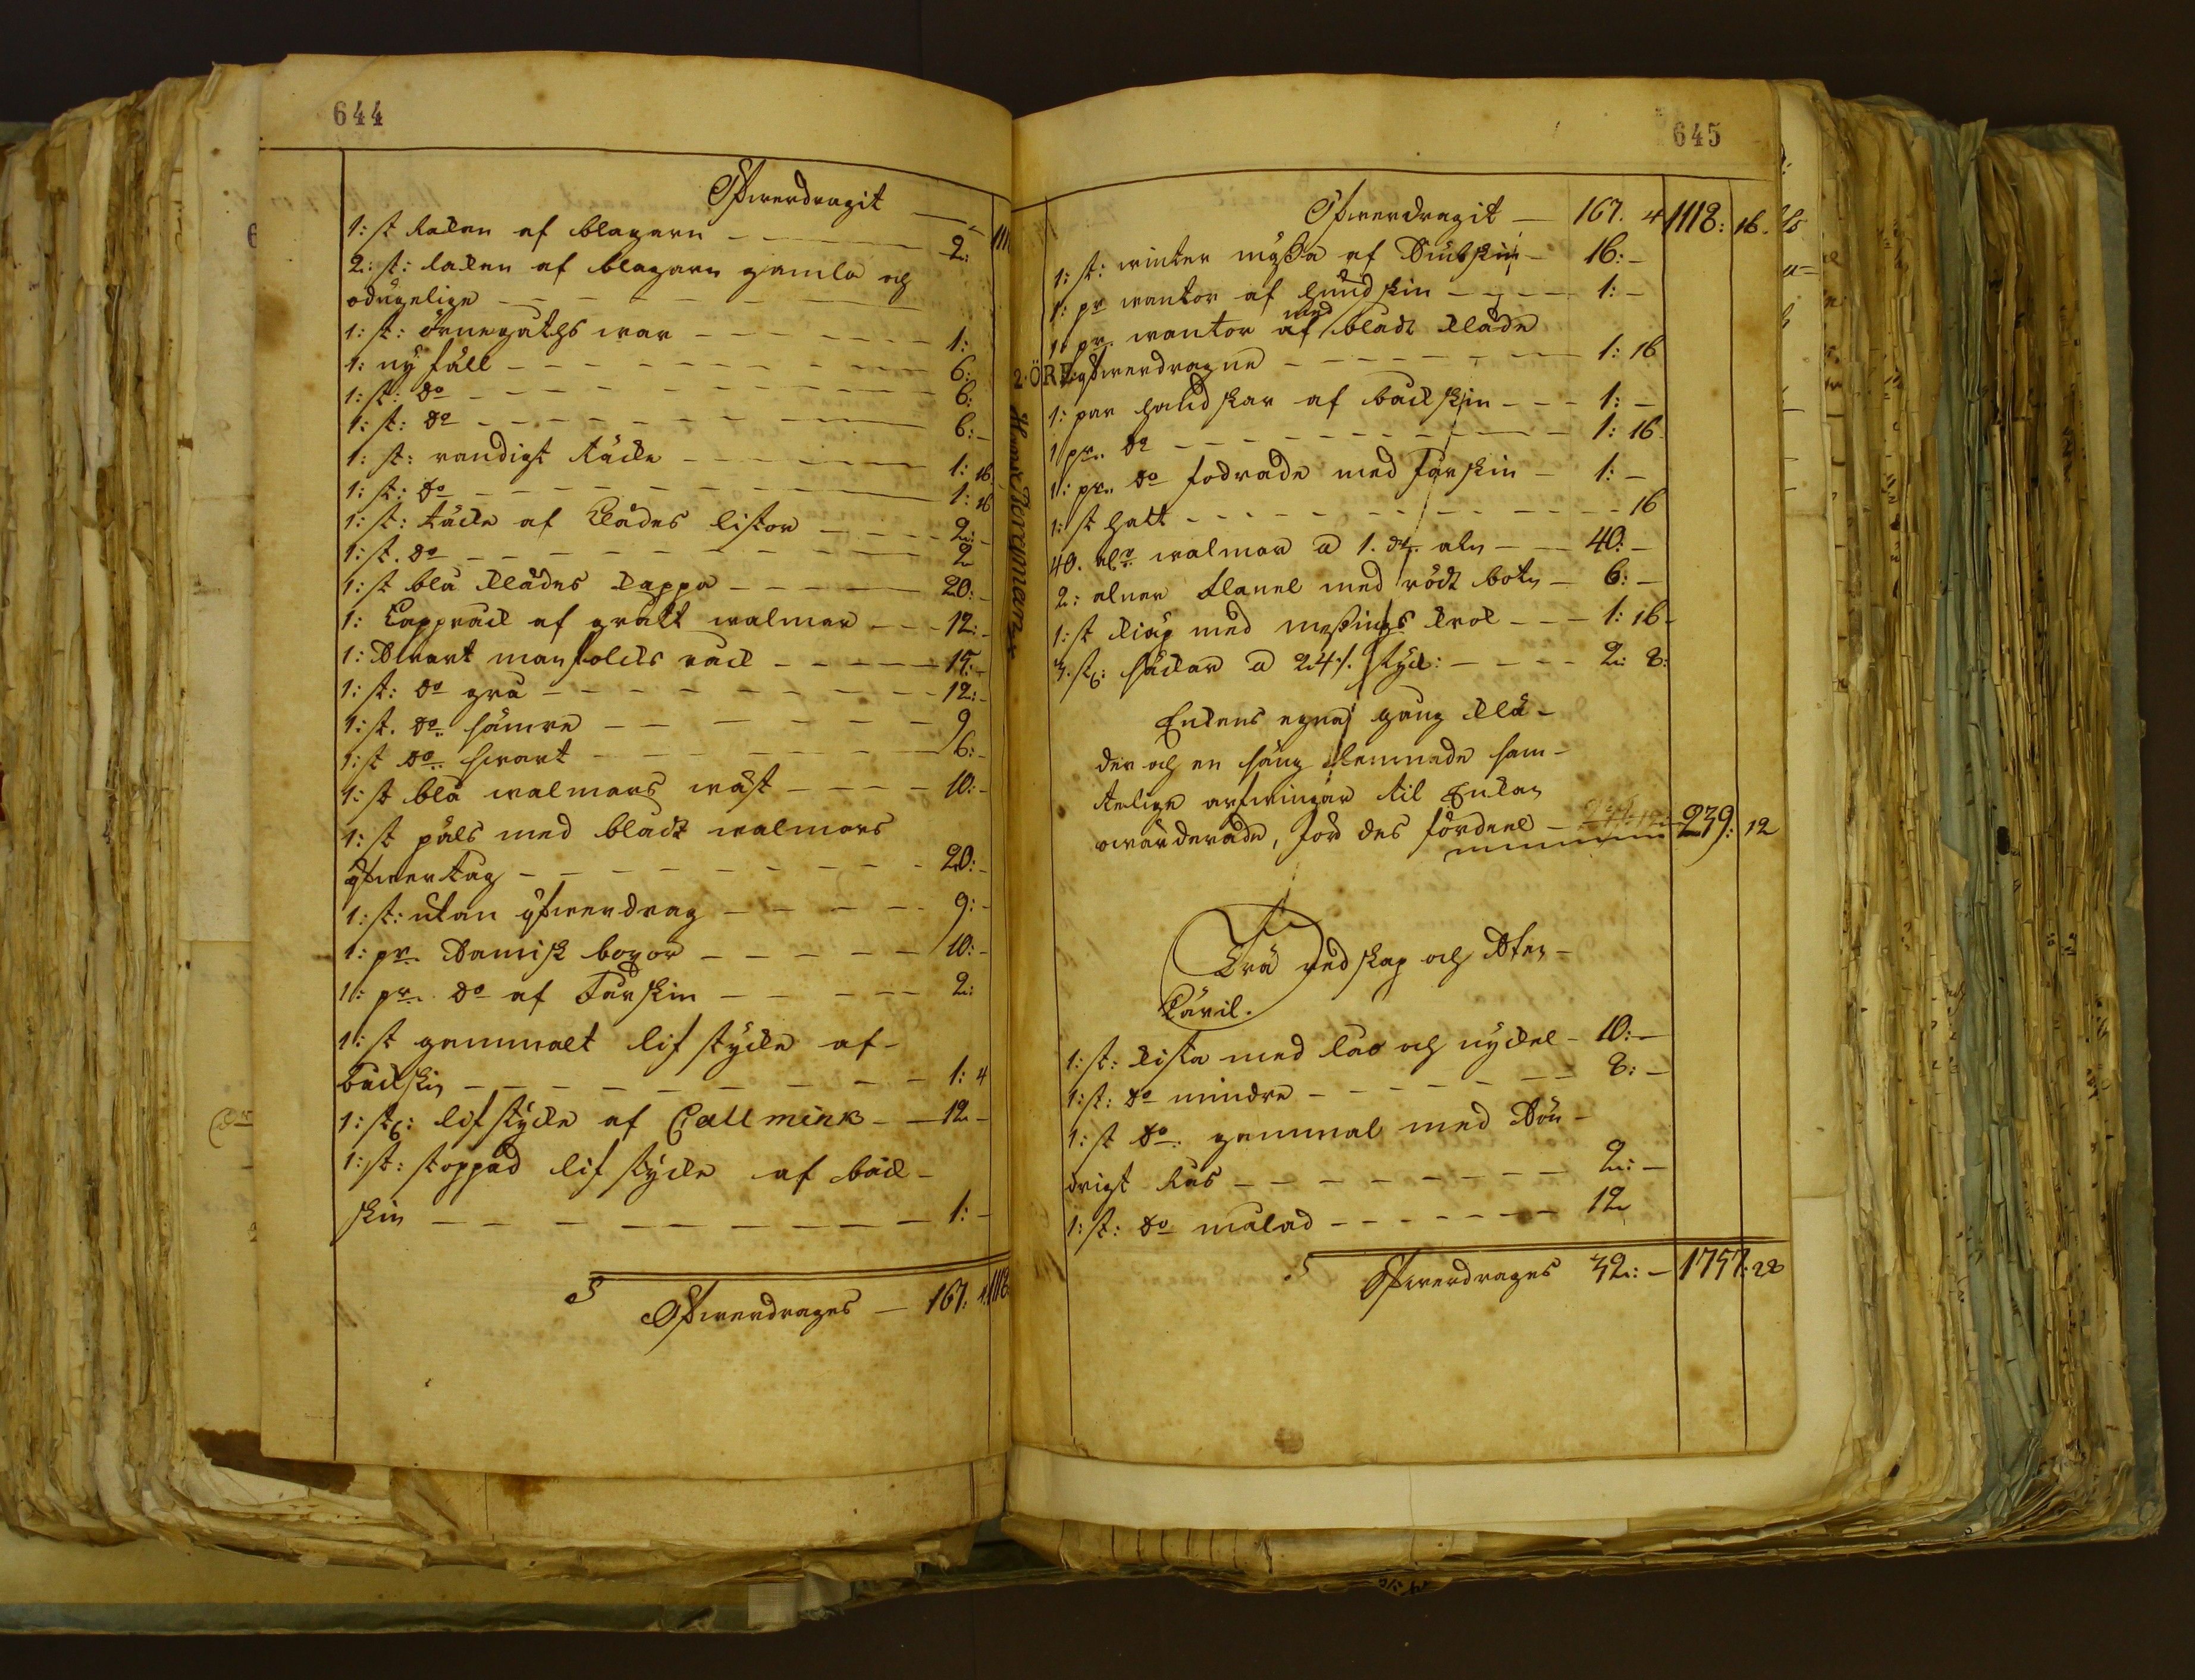 644
Öfwerdragit —
1: st Lakan af blagarn — 2:
2: st: lakan af blagarn gamla och
odugelige
1: st: örnegåtts war — 1:
1: ny fäll — 6:
1: st: Do — 6:
1: st: Do — 6: -
1: st: randigt täcke — 1: 16
1: st: Do — 1: 16
1: st: täcke af Klädes listor — 2: -
1: st. Do — 2
1: st blå klädes kappa — 20: -
1: Cappråck af grått walmar — 12: -
1: Swart mansfolcks råck — 15: -
1: st: Do grå — 12: -
1: st. Do sämre — 9
1: st Do swart — 6: -
1: st blå walmars wäst — 10: -
1: st päls med blådt walmars
öfwertag — 20: -
1: st: utan öfwerdrag — 9: -
1: pr. Samisk boxor — 10: -
1: pr. Do af Fårskin — 2:
1: st gammalt lifstycke af
bäckskin — 1: 4
1: st: lifstycke af Callmink — 12 -
1: st: stoppad lifstycke af båck-
skin — 1: -
S Öfwerdrages — 167: 4 1118
645
Öfwerdragit — 167. 4 1118: 16.
1: st: winter mössa af — 16: -
1: pr wantor af hundskin — 1: -
med
1: pr. wantor af blådt kläde
öfwerdragne — 1: 16
2. ÖRE
1: par handskar af båckskin — 1: -
1 pr. Do — 1: 16
1: pr. Do fodrade med Fårskin — 1: -
1: st hatt — 16
40. aln walmar a 1. dr. aln — 40: -
2: alnar flanel med rödt botn — 6: -
1: st käp med messings krok — 1: 16
3. st: säckar a 24 s. styck: — 2: 8:
Enkans egna gång klä-
der och en säng lemnade sam-
telige arfwingar til Enkan
owärderade, för des fördeel — 239: 12
Trä redskap och Sten-
käril.
1: st: kista med lås och nyckel — 10: -
1: st: Do mindre — 8: -
1: st Do. gammal med Sön-
drigt Lås — 2: -
1: st: Do målad — 12
S Öfwerdrages 32: - 1757: 28